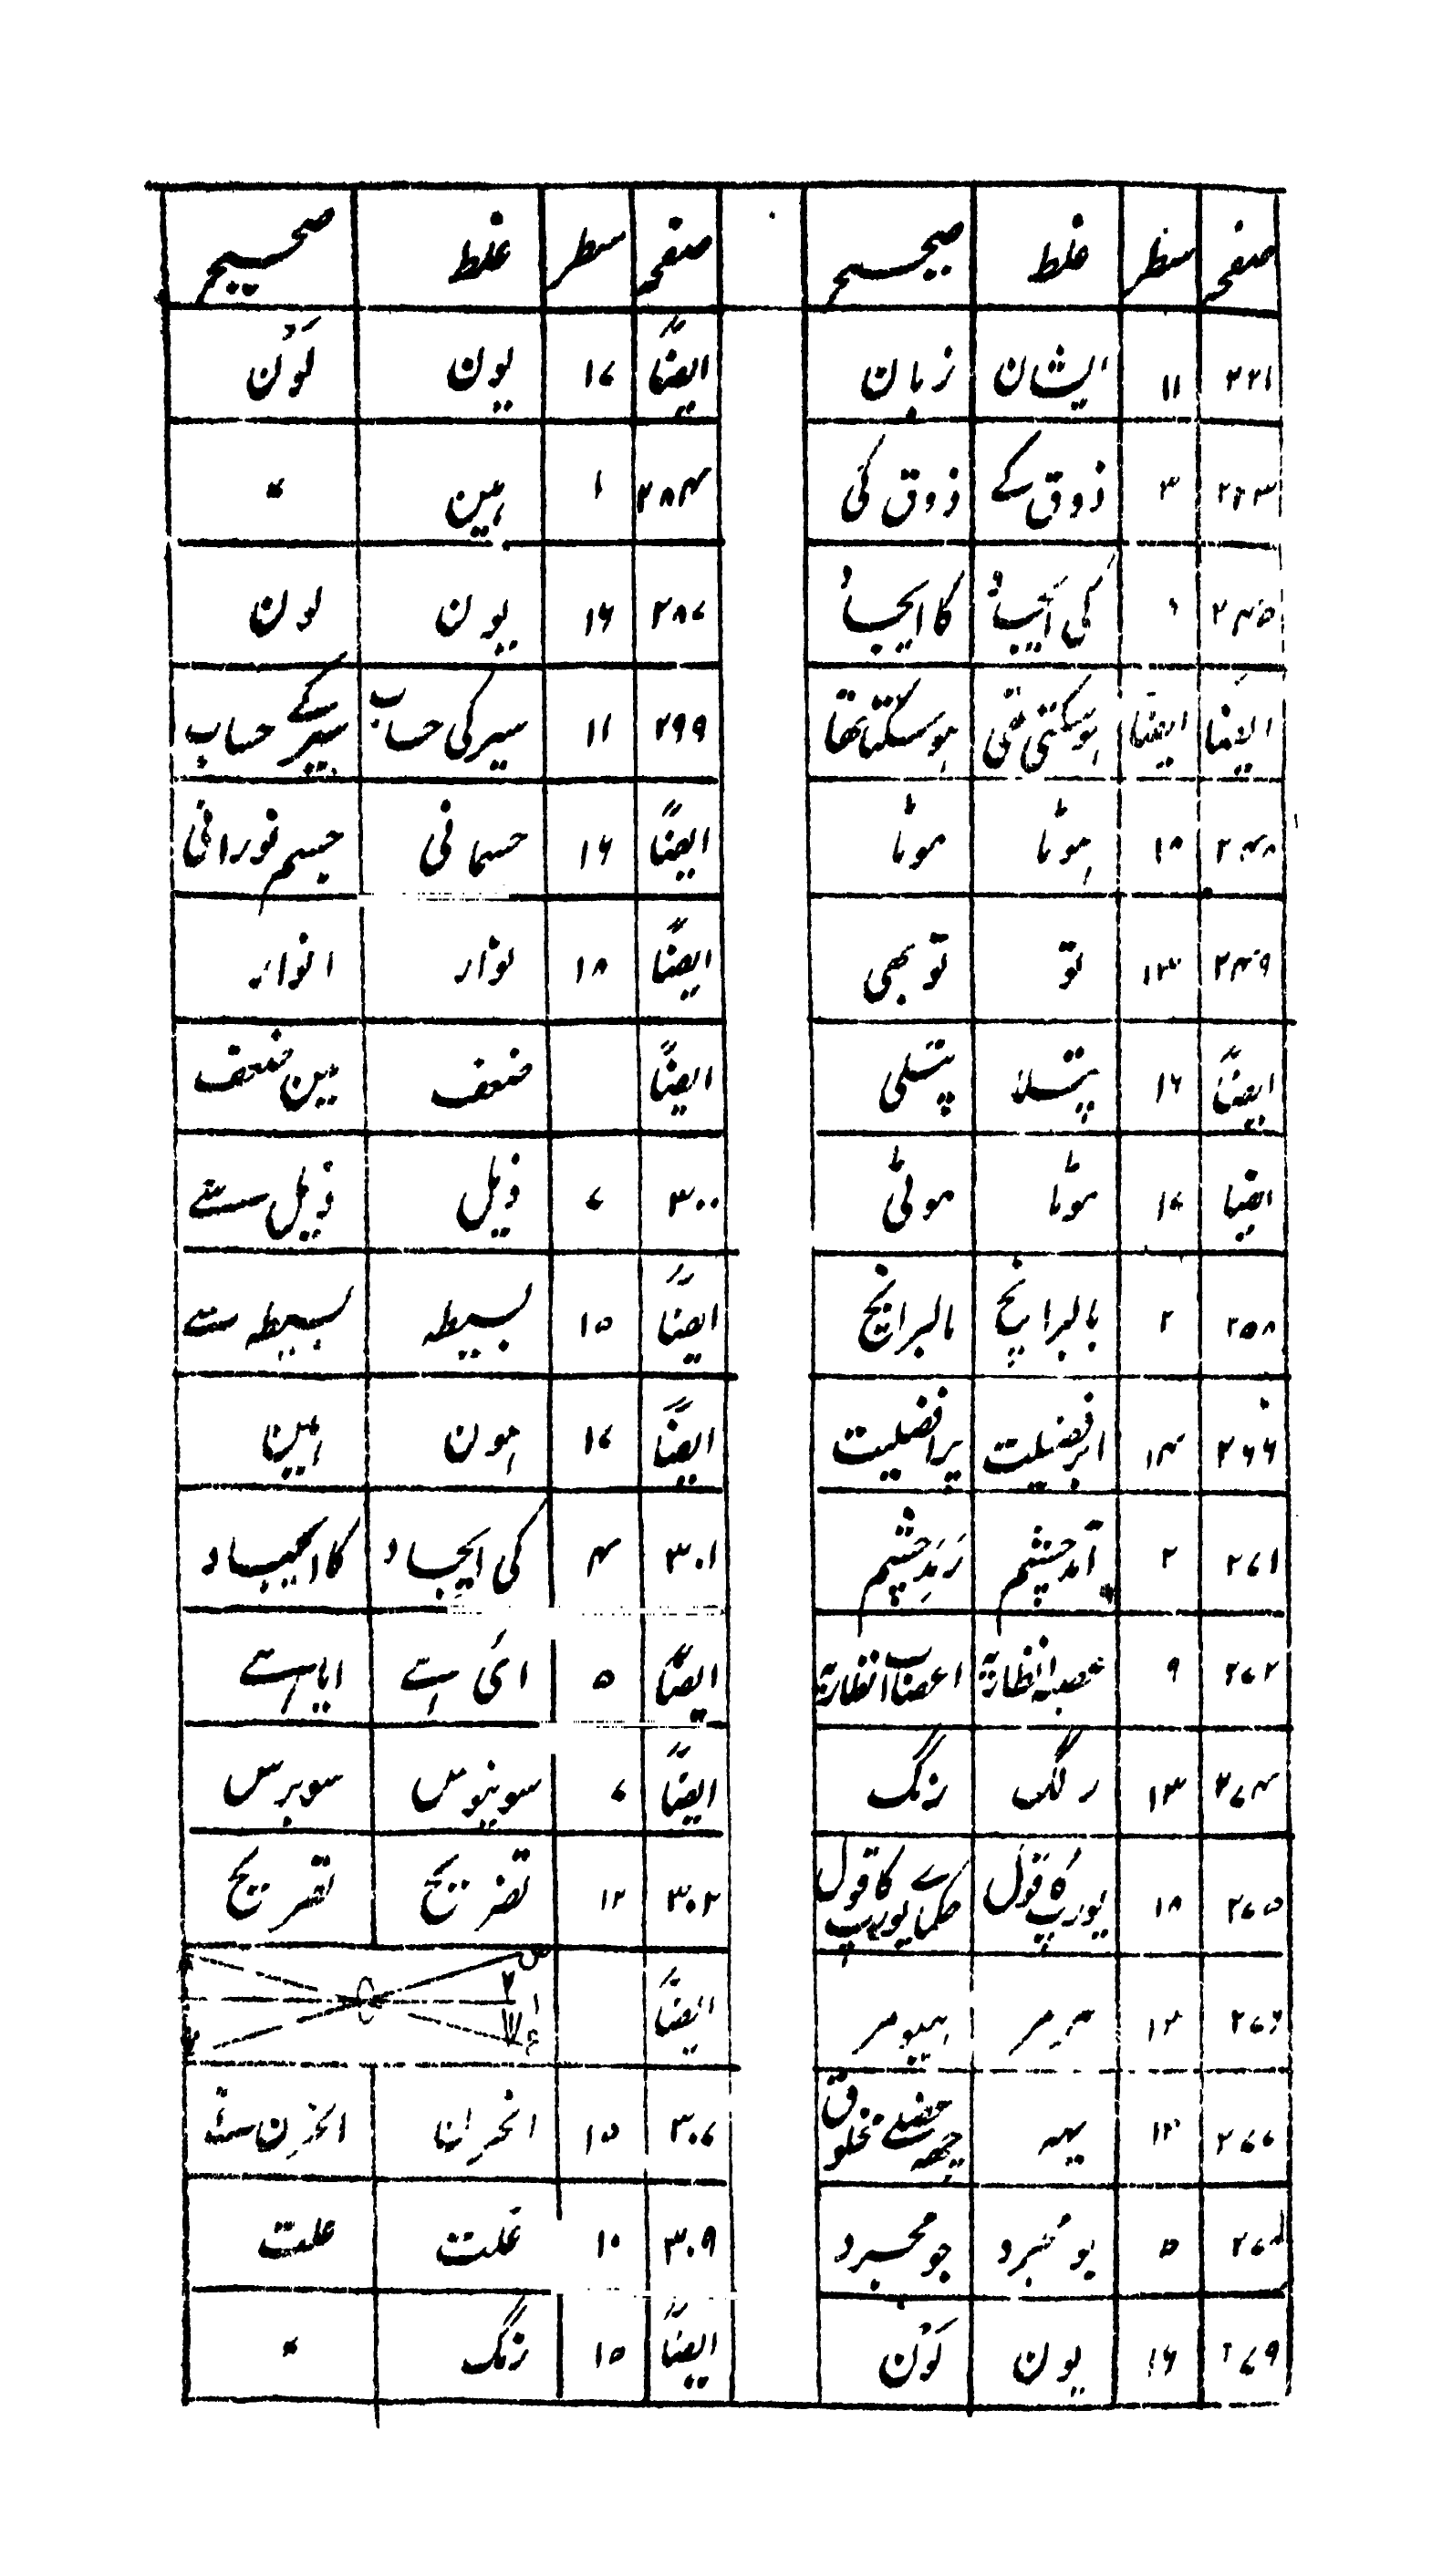 صفحہ سطر غلط صحیح
۲۲۱ ۱۱ ایشان زبان
۲۴۳ ۳ ذوق کے ذوق کی
۲۴۵ کی ایجاد کا ایجاد
ایضاً ایضاً ہوسکتی تھی ہوسکتا تھا
۲۴۸ ۱۸ ہوٹا موٹا
۲۴۹ ۱۳ تو تو بھی
ایضاً ۱۶ پتلا پتلی
ایضاً ۱۷ موٹا موٹی
۲۵۸ ۲
۲۶۶ ۱۴ پر افضلیت
۲۷۱ ۲ آمد چشم رَمَد چشم
۲۷۲ ۹ عصبہ انظاریہ اعصاب انظاریہ
۲۷۴ ۱۳ رنگ
۲۷۵ ۱۸ یورپ کا قول حکمائے یورپ کا قول
۲۷۶ ۱۳
۲۷۷ ۱۳ یہہ
۵ یو مجرد جو مجرد
۲۷۹ ۱۶ یون لَوْن
صفحہ سطر غلط صحیح
ایضاً ۱۷ یون لَوْن
۲۸۴ ۱ ہین ״
۲۸۷ ۱۶ یون لون
۲۹۹ ۱۱ سیر کی حساب سیر کے حساب
ایضاً ۱۶ جسمانی جسم نورانی
ایضاً ۱۸ نوار انوار
ایضاً ضعف مین ضعف
۳۰۰ ۷ ذیل ذیل سے
ایضاً ۱۵ بسیطہ بسیطہ سے
ایضاً ۱۷ ہون ہین
۳۰۱ ۴ کی ایجاد کا ایجاد
ایضاً ۵
ایضاً ۷
۳۰۲ ۱۲ تضریح تصریح
ایضاً
۳۰۷ ۱۵
۳۰۹ ۱۰ غلت علت
ایضاً ۱۵ رنگ ״